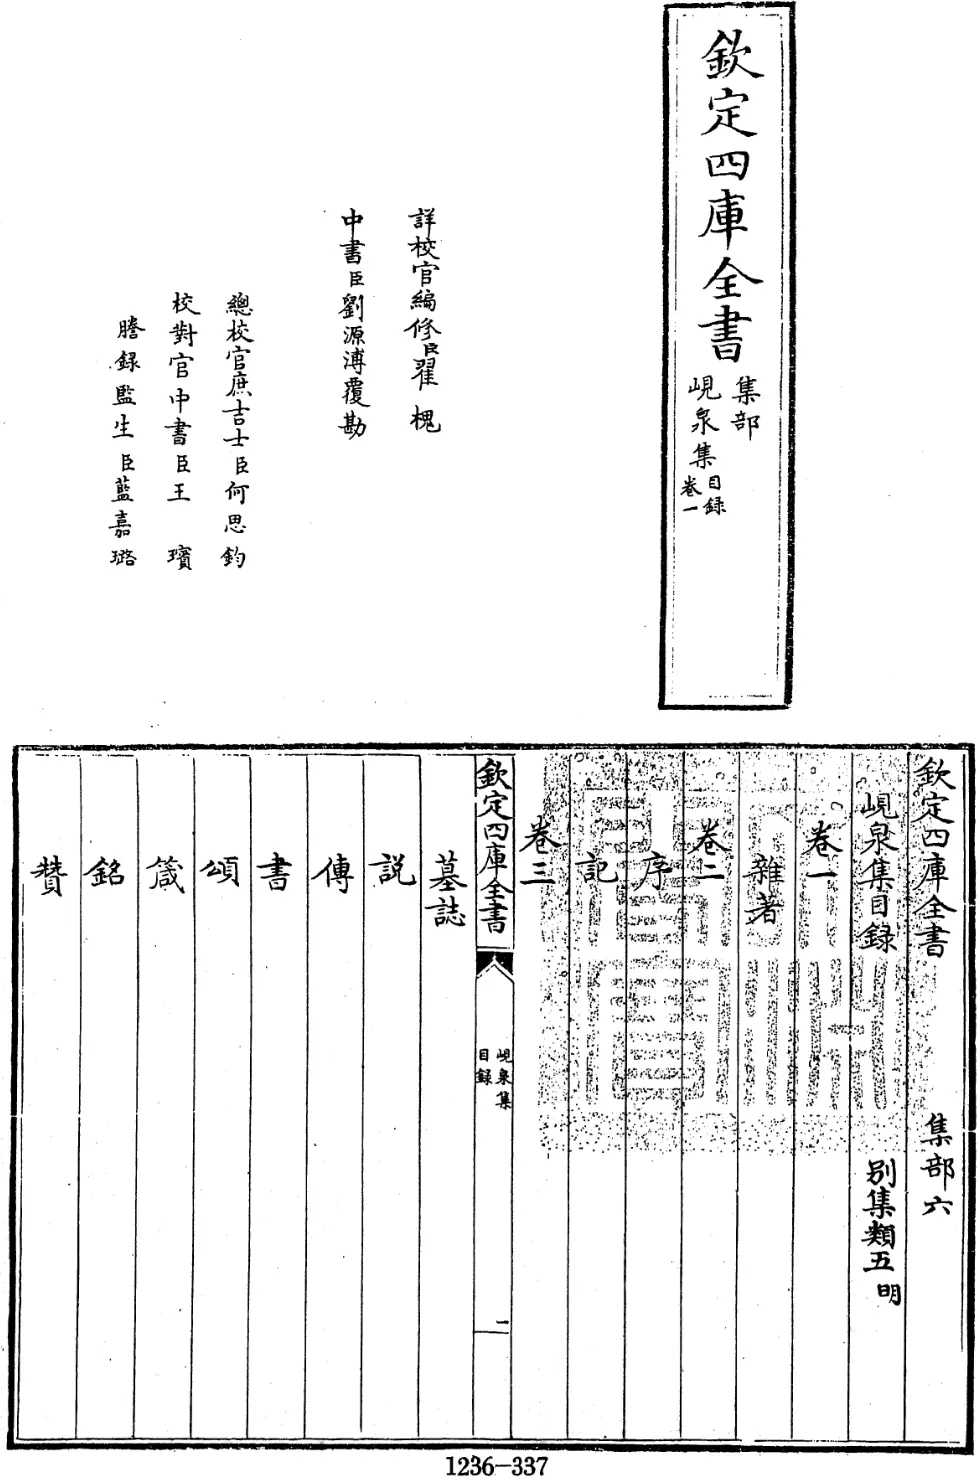 欽定四庫全書
集部
峴泉集目録
卷一
詳校官編修臣翟槐
中書臣劉源溥覆勘
總校官庶吉士臣何思鈞
校對官中書臣王璸
謄録監生臣藍嘉璐
欽定四庫全書 集部六
峴泉集目録 别集類五 明
卷一
雜著
卷二
序
記
卷三
欽定四庫全書
峴泉集
目録
一
墓誌
説
傳
書
頌
箴
銘
贊
1236-337